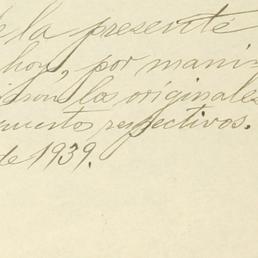 la presente
hoy, por mani
son los originales
puestos respectivos.
de 1939.